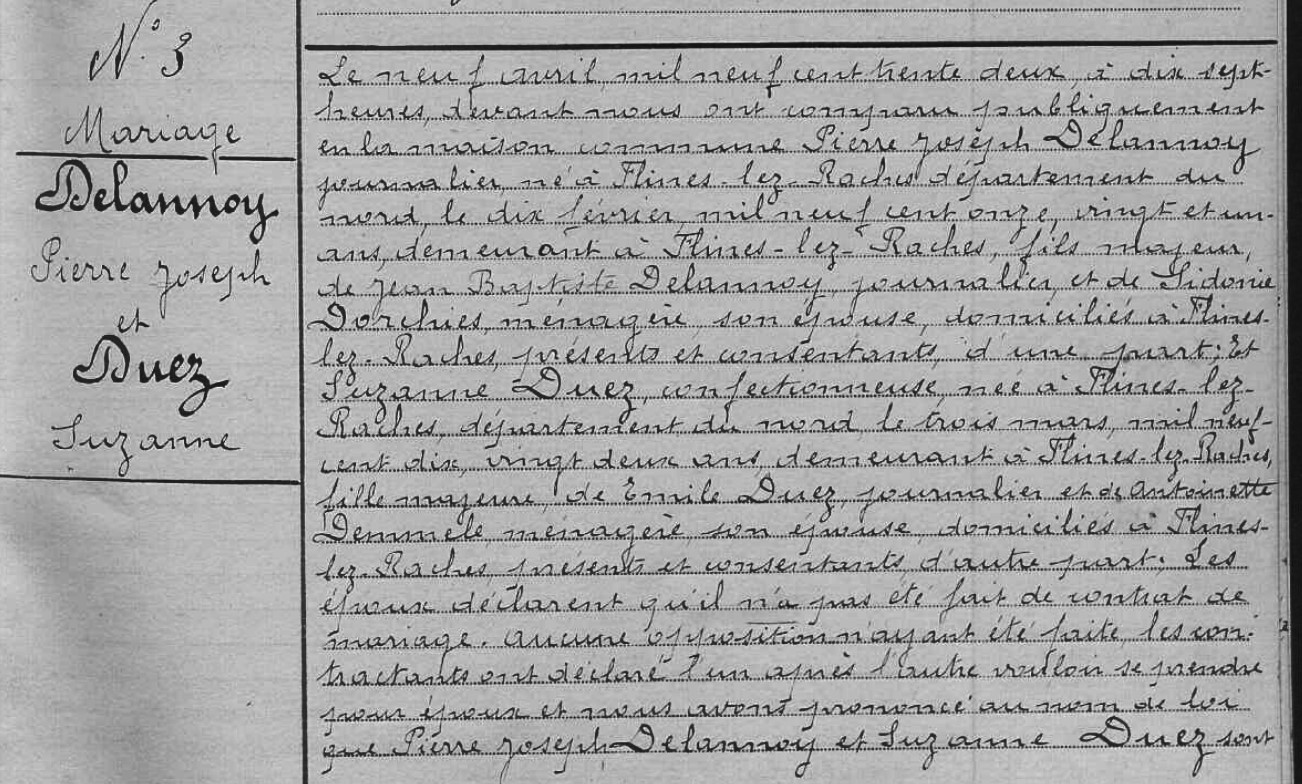 N° 3
Mariage
Delannoy
Pierre Joseph
et
Duez
Suzanne
Le neuf avril, mil neuf cent trente deux, à dix sept-
heures, devant nous ont comparu publiquement
en la maison commune Pierre Joseph Delannoy
journalier, né à Flines-lez-Raches département du
nord, le dix février, mil neuf cent onze, vingt et un-
ans, demeurant à Flines-lez-Raches, fils majeur,
de Jean Baptiste Delannoy, journalier, et de Sidonie
Dorchies, ménagère, son épouse, domiciliés à Flines-
lez-Raches, présents et consentants, d'une part; Et
Suzanne Duez, confectionneuse, née à Flines-lez-
Raches, département du nord, le trois mars, mil neuf-
cent dix, vingt deux ans, demeurant à Flines-lez-Raches,
fille majeure, de Emile Duez, journalier et de Antoinette
Demmele, ménagère, son épouse, domiciliés à Flines-
lez-Raches, présents et consentants, d'autre part; Les
époux déclarent qu'il n'a pas été fait de contrat de
mariage. Aucune opposition n'ayant été faite, les con-
tractants ont déclaré l'un après l'autre vouloir se prendre
pour époux et nous avons prononcé au nom de loi
que Pierre Joseph Delannoy et Suzanne Duez sont